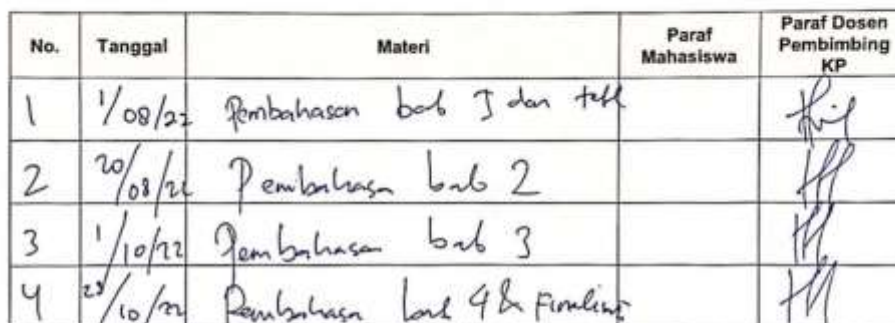 No. Tanggal Materi Paraf Mahasiswa Paraf Dosen Pembimbing KP
1 1/08/22 Pembahasan bab I dan
2 20/08/22 Pembahasan bab 2
3 1/10/22 Pembahasan bab 3
4 /10/22 Pembahasan bab 4 &